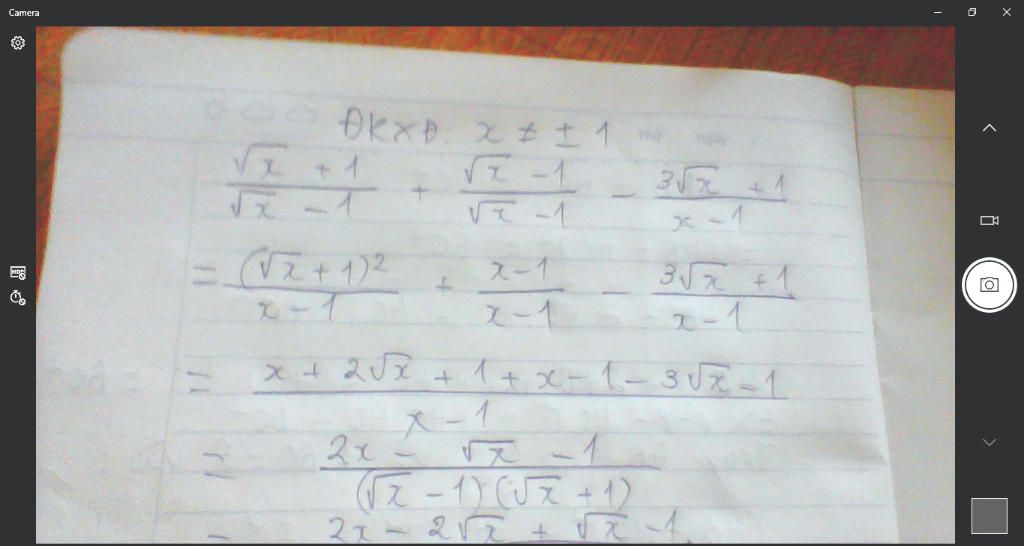 Camera
ĐKXĐ: x ≠ ± 1
(√x + 1)/(√x - 1) + (√x - 1)/(√x - 1) - (3√x + 1)/(x - 1)
= (√x + 1)²/(x - 1) + (x - 1)/(x - 1) - (3√x + 1)/(x - 1)
= (x + 2√x + 1 + x - 1 - 3√x - 1)/(x - 1)
= (2x - √x - 1)/((√x - 1)(√x + 1))
= 2x - 2√x + √x - 1